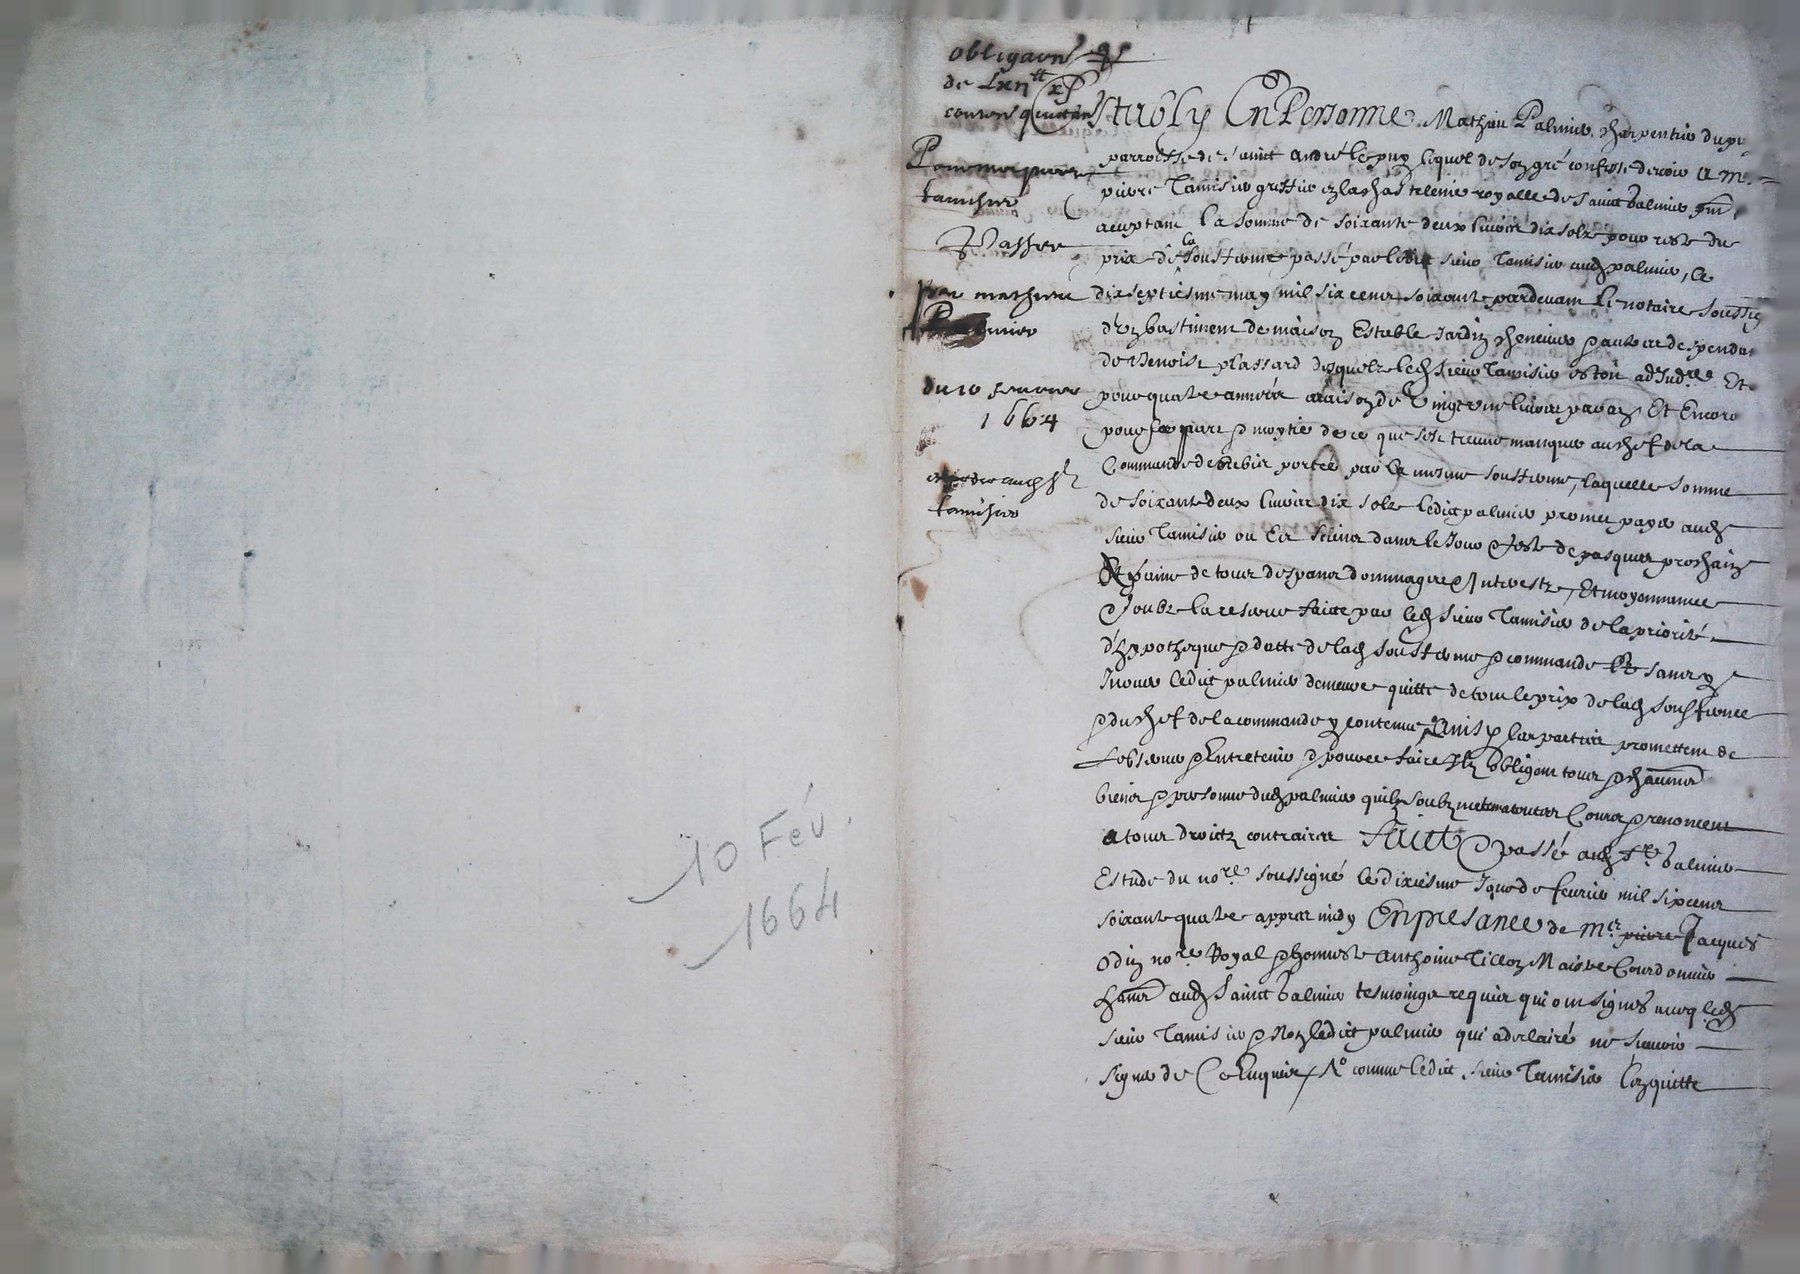 10 Fév.
1664
obligaõn
de Lxii tt x s
contenant quittance
Pour me pierre
tamisier
Passee
par mathieu
Palmier
du 10 feurier
1664
expedie aud sr
tamisier
Estably En Personne Mathieu Palmier charpentier du puy
parroisse de sainct André le puy lequel de son gré confesse debvoir a Me
pierre Tamisier greffier en la chastelenie royalle de sainct Galmier
aceptant la somme de soixante deux livres dix solz pour reste du
prix de la soustserme passé par ledict sieur Tamisier aud palmier, le
dixseptiesme may mil six cens soixante pardevant le notaire soussig
d'un bastiment de maison Estable Jardin cheneuier & autres despendan
de Benoist plassard desquelz led sieur Tamisier estoit adjud.re Et
pour quatre années a raison de vingt une livres par an Et Encore
pour sa part & moytié de ce que s'est treuué manquer au chef de la
Commande de bestia portée par la mesme soustserme, laquelle somme
de soixante deux livres dix solz ledict palmier promet payer aud
sieur Tamisier ou Es siens dans le Jour & feste de pasques prochain
A peine de tous despans dommages & Intherestz, Et moyennance
& soubz la reserue faicte par led sieur Tamisier de la priorité
d'hypotheque & datte de lad soustserme & commande sans y
Inouer ledict palmier demeure quitte de tout le prix de lad soustserme
& du chef de la commande y contenue Ainsy les parties promettent de
l'obseruer & Entretenir & pour ce faire Ilz obligent tous & chacuns
biens & personne dud palmier quilz soubzmetent a toutes Cours & renoncent
a tous droictz contraires Faict & passé aud St Galmier
Estude du no.re soussigné le dixiesme Jour de feurier mil six cens
soixante quatre appres midy En presance de Me pierre Jacques
Odin no.re Royal & honneste Anthoine Tillon Maistre Courdonnier
hans aud Sainct Galmier tesmoings requis qui ont signés auec led
sieur Tamisier & Non ledict palmier qui a declairé ne scauoir
signer de Ce Enquis / No comme ledict sieur Tamisier l'en quitte